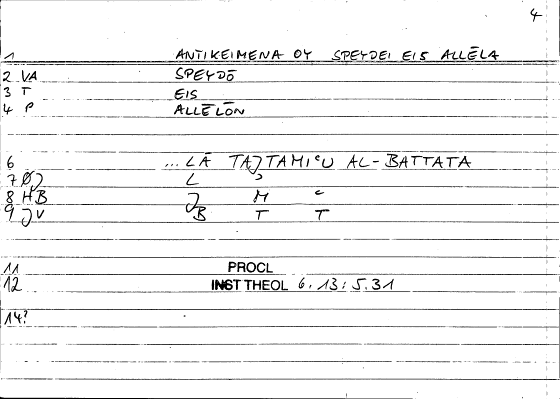 4
1 ANTIKEIMENA OY SPEYDEI EIS ALLĒLA
2 VA SPEYDŌ
3 T EIS
4 P ALLĒLŌN
6 ...LĀ TAJTAMIʿU AL-BATTATA
7 ØJ L ʾ
8 HB J M ʿ
9 JV B T T
11 PROCL
12 INST THEOL 6.13:5.31
14?